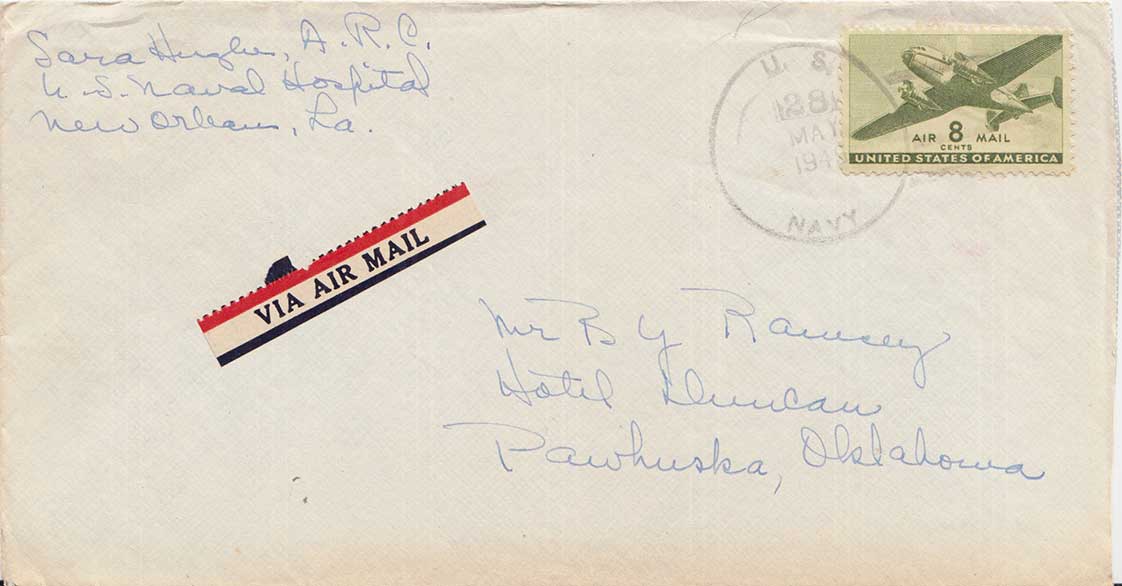 Sara Hughes, A.R.C.
U.S. Naval Hospital
New Orleans, La.
U.S.
MAY
194
NAVY
AIR 8 MAIL
CENTS
UNITED STATES OF AMERICA
VIA AIR MAIL
Mr B Y Ramsey
Hotel Duncan
Pawhuska, Oklahoma